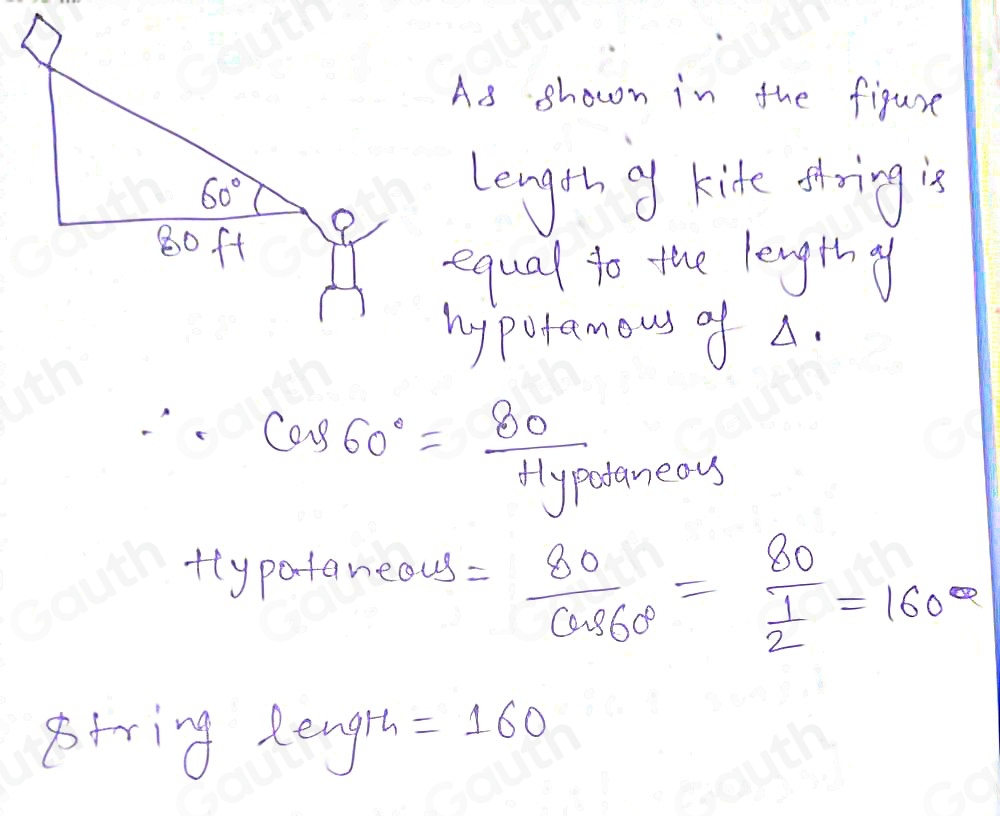 As shown in the figure
Length of kite string is
equal to the length of
hyputamous of Δ.
60°
80 ft
∴ Cos 60° = 80 / Hypotaneous
Hypotaneous = 80 / Cos 60° = 80 / 1/2 = 160
String length = 160
Gauth